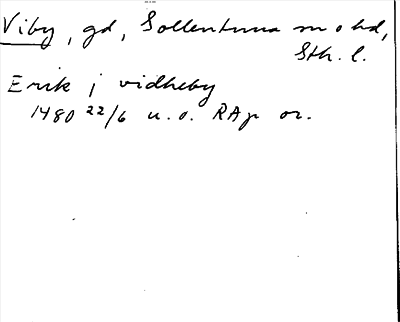 Viby, gd, Sollentuna sn o hd,
Sth. l.
Erik j vidheby
1480 22/6 u.o. RAp or.